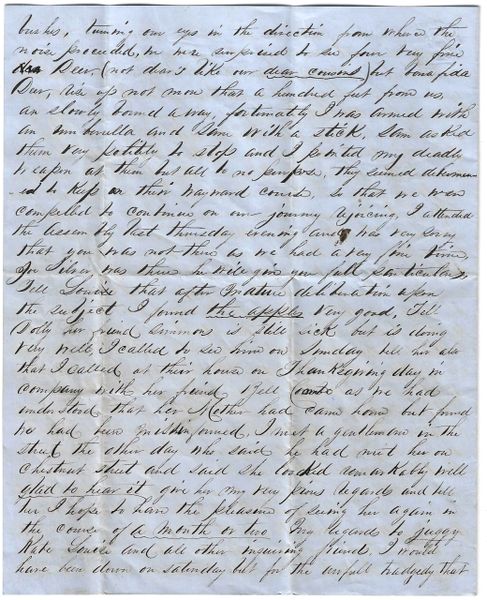 bushes, turning our eyes in the direction from whence the
noise proceeded, we were surprised to see four very fine
Deer, (not dears like our dear cousins) but bonafida
Deer, rise up not more than a hundred feet from us
an slowly bound away, fortunately I was armed with
an umberella and Sam with a stick, Sam asked
them very politely to stop and I pointed my deadly
weapon at them but all to no purpose, they seemed determin
ed to keep on their wayward course, so that we were
compelled to continue on our journey rejoicing, I attended
the assembly last thursday evening and was very sorry
that you was not there as we had a very fine time,
was there he will give you full particulars,
Tell Louise that after mature deliberation upon
the subject I found the apples very good, Tell
Dolly her friend Simmons is still sick but is doing
very well, I called to see him on Sunday, tell her also
that I called at their house on Thanksgiving day in
company with her friend Bell as we had
understood that her Mother had came home but found
we had been misinformed, I met a gentleman in the
street the other day who said he had met her on
chestnut street and said she looked remarkably well
glad to hear it give her my very best regards and tell
her I hope to have the pleasure of seeing her again in
the course of a month or two My regards to
Kate Louise and all other inquiring friends. I would
have been down on saturday but for the awfull tradgedy that